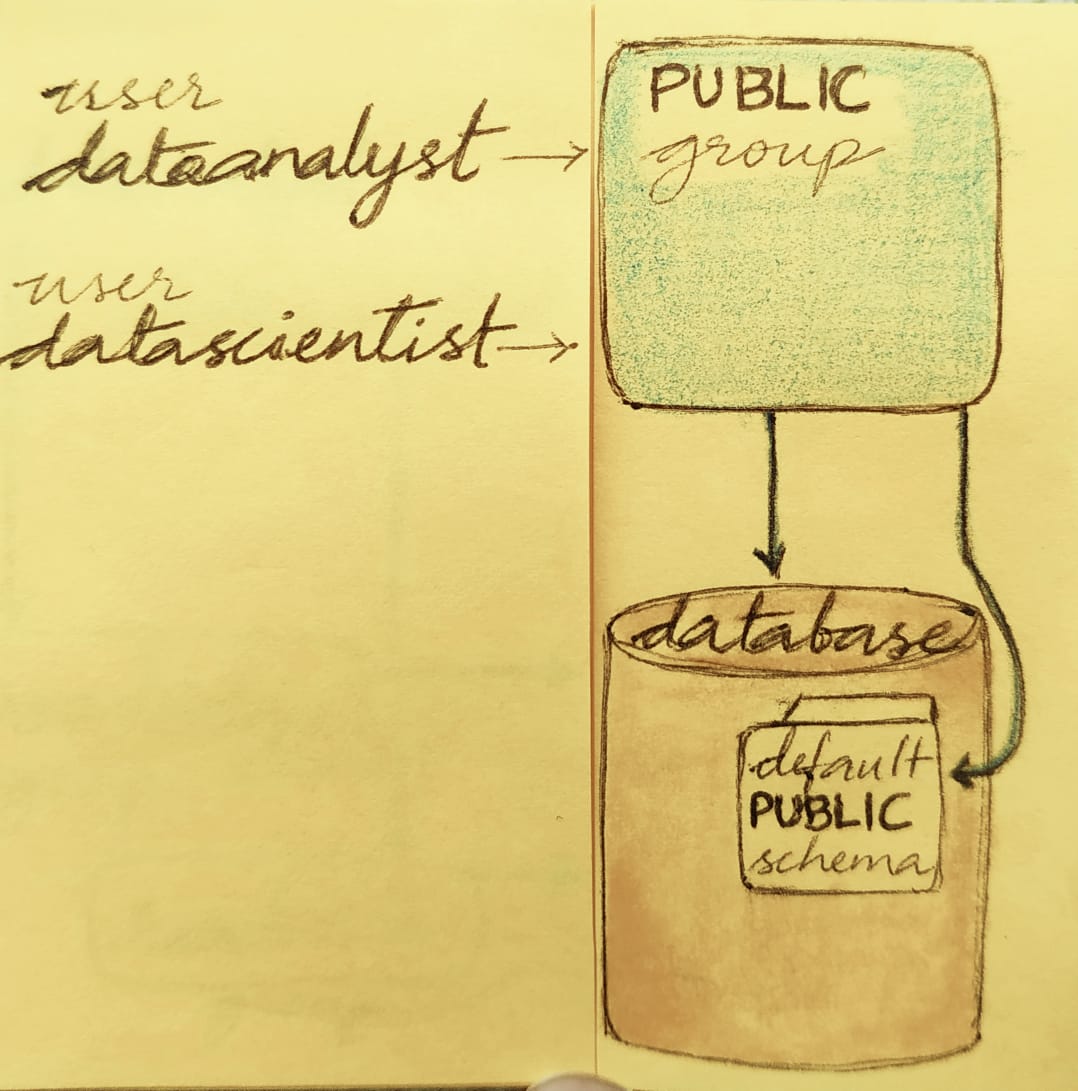 user
dataanalyst
user
datascientist
PUBLIC
group
database
default
PUBLIC
schema